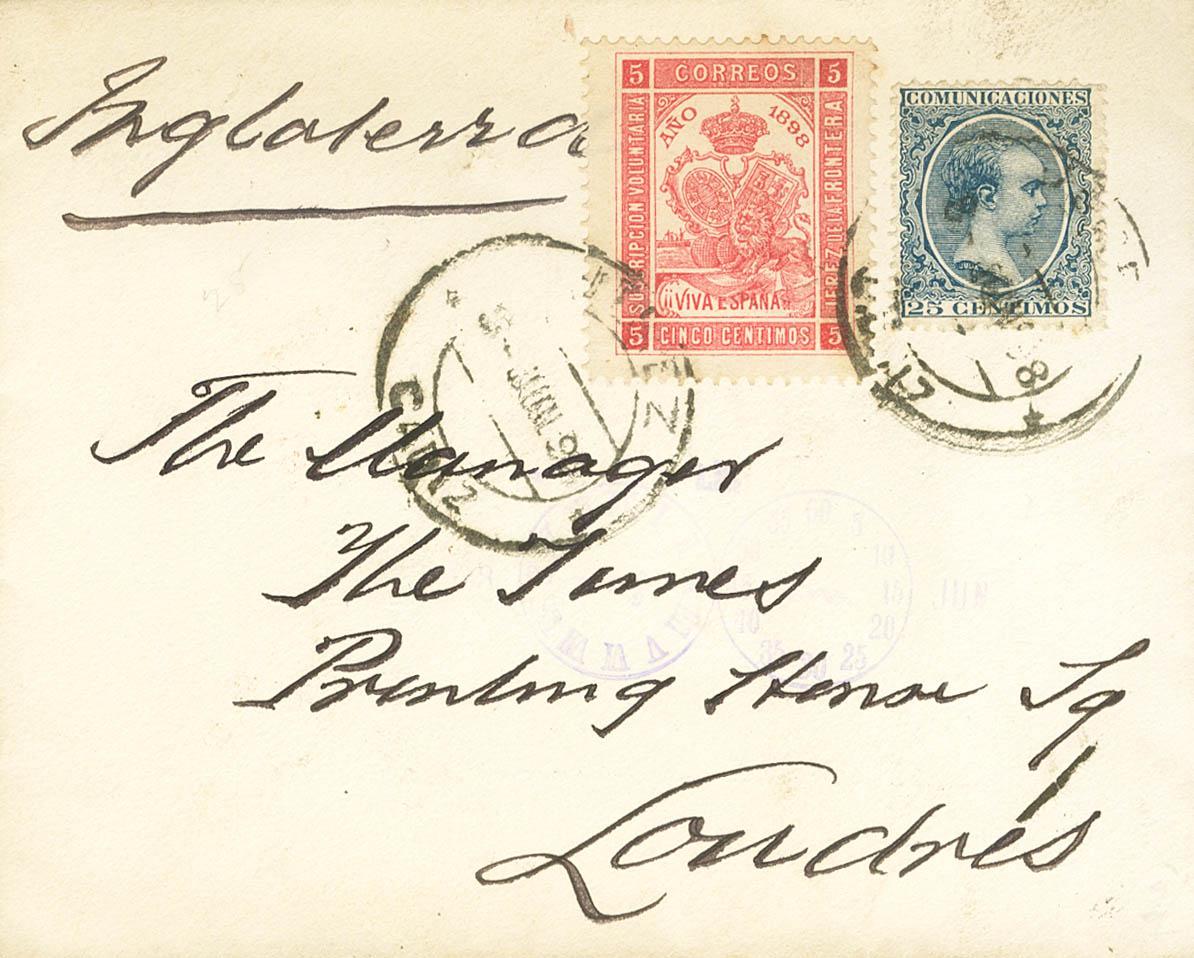 Inglaterra
5 CORREOS 5
AÑO 1898
SUSCRIPCION VOLUNTARIA
JEREZ DE LA FRONTERA
¡¡VIVA ESPAÑA!!
5 CINCO CENTIMOS 5
COMUNICACIONES
25 CENTIMOS
CADIZ
CADIZ
The Manager
The Times
Printing House Sq
Londrés
60 5 10 15 20 25 30 35 40
JUN